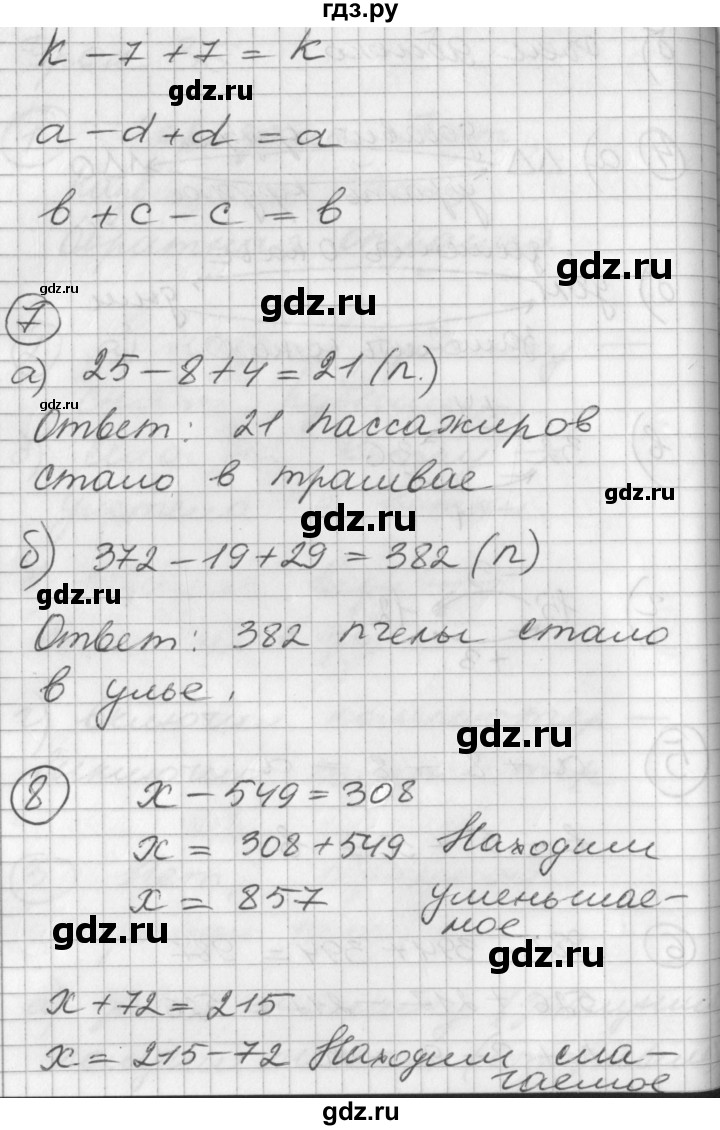 гдз.ру
k − 7 + 7 = k
gdz.ru
a − d + d = a
b + c − c = b
gdz.ru
gdz.ru
gdz.ru
7
а) 25 − 8 + 4 = 21 (п.)
gdz.ru
Ответ: 21 пассажиров
стало в трамвае
gdz.ru
gdz.ru
б) 372 − 19 + 29 = 382 (п)
gdz.ru
Ответ: 382 пчелы стало
в улье.
gdz.ru
8 x − 549 = 308
x = 308 + 549 Находим
x = 857 уменьшае-
мое
gdz.ru
gdz.ru
x + 72 = 215
x = 215 − 72 Находим сла-
гаемое
gdz.ru